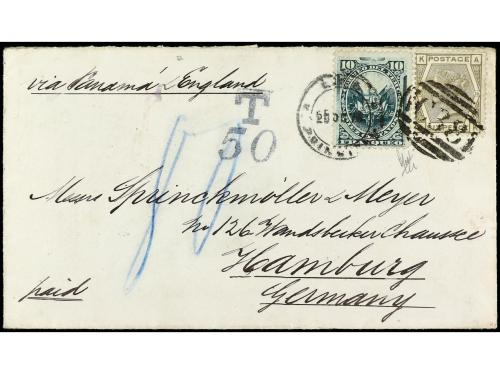 via Panamá & England
T
50
10 10
K POSTAGE A
LIMA
80
Messrs Sprinckmöller & Meyer
No 126 Wandsbecker Chaussee
Hamburg
Germany
paid